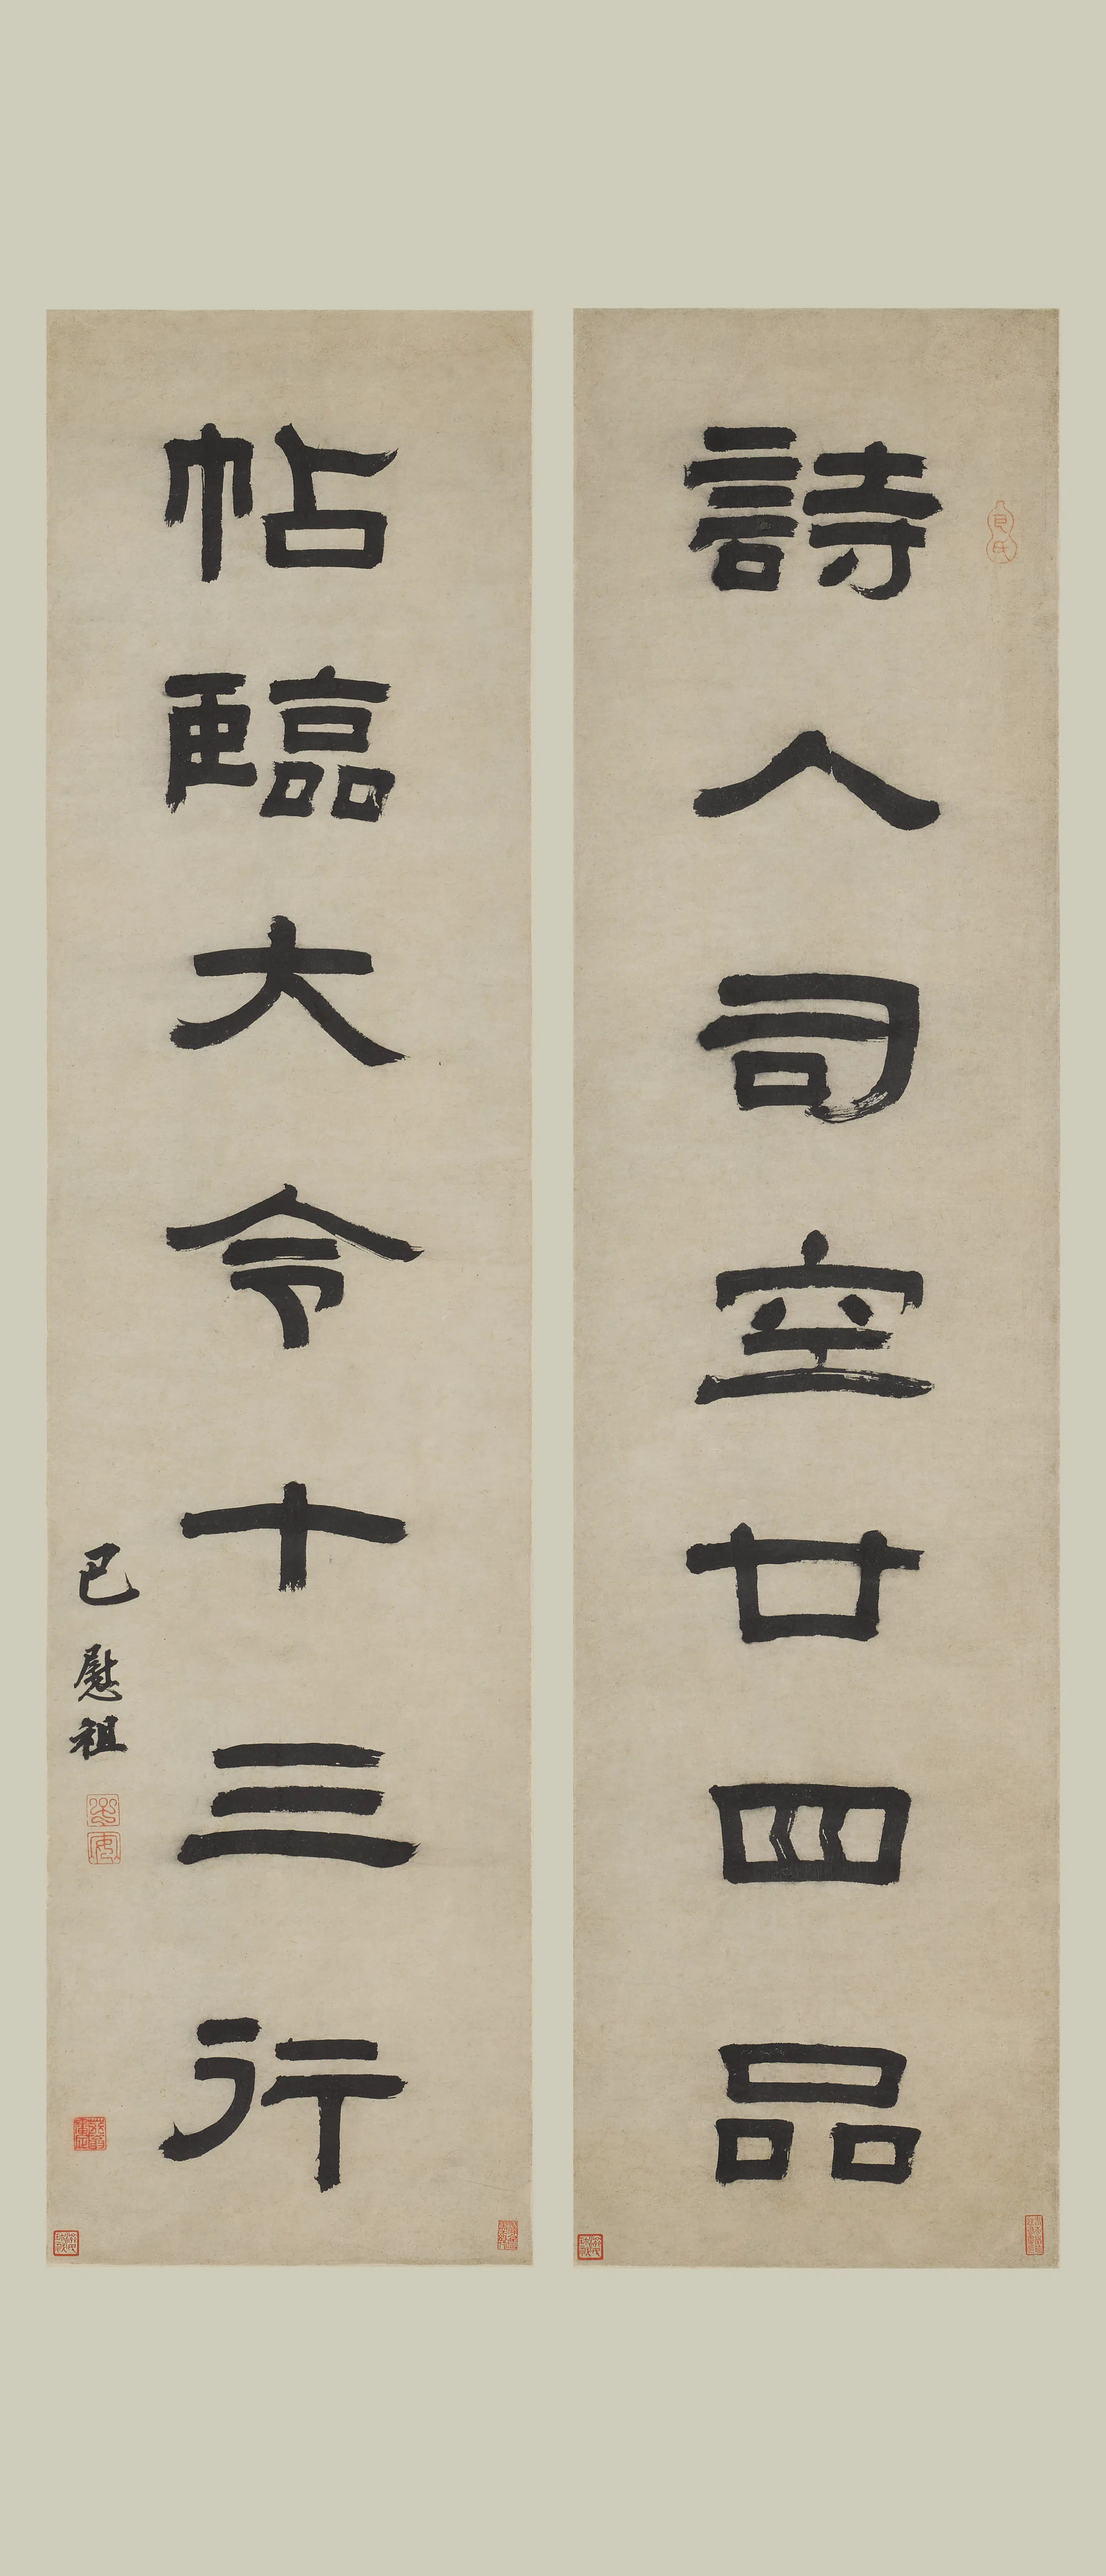 詩人司空廿四品
帖臨大令十三行
巴慰祖
巴氏